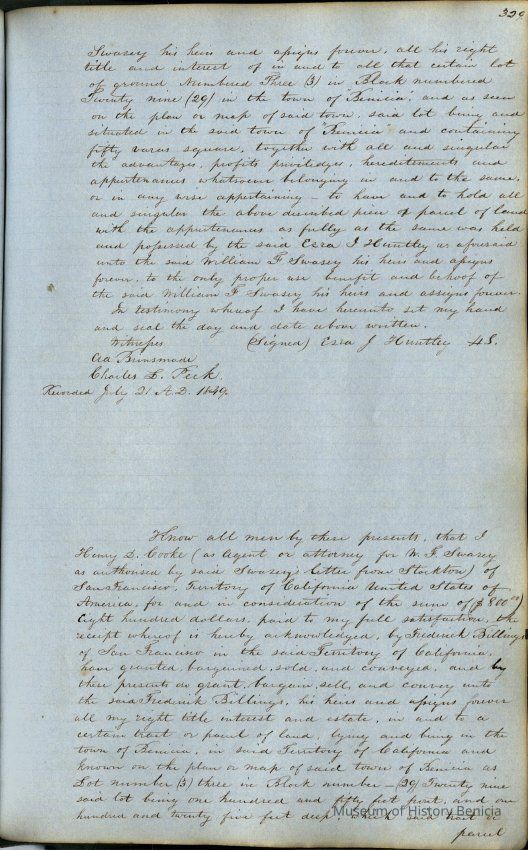 329
Swasey his heirs and assigns forever, all his right
title and interest of in and to all that certain lot
of ground Numbered Three (3) in Block numbered
Twenty nine (29) in the town of "Benicia", and as seen
on the plan or map of said town, said lot being and
situated in the said town of "Benicia" and containing
fifty varas square, together with all and singular
the advantages, profits priviledges, hereditements and
appertenances whatsoever belonging in and to the same,
or in any wise appertaining — to have and to hold all
and singular the above described piece or parcel of land
with the appertenances as fully as the same was held
and possessed by the said Ezra J Huntley as aforesaid
unto the said William F. Swasey his heirs and assigns
forever, to the only proper use benefit and behoof of
the said William F Swasey his heirs and assigns forever.
In testimony whereof I have hereunto set my hand
and seal the day and date above written.
Witnesses (Signed) Ezra J Huntley
Brinsmade
Charles L. Peck.
Recorded July 21 A.D. 1849.
Know all men by these presents, that I
Henry D. Cooke (as Agent or attorney for W. F. Swasey
as authorised by said Swasey's letter from Stockton) of
San Francisco, Territory of California United States of
America, for and in consideration of the sum of ($800.00)
Eight hundred dollars, paid to my full satisfaction, the
receipt whereof is hereby acknowledged, by Frederick Billings
of San Francisco in the said Territory of California,
have granted, bargained, sold, and conveyed, and by
these presents do grant, bargain, sell, and convey unto
the said Frederick Billings, his heirs and assigns forever
all my right title interest and estate, in and to a
certain tract or parcel of land, lying and being in the
town of Benicia, in said Territory of California and
known on the plan or map of said town of Benicia as
Lot number (3) three in Block number — (29) Twenty nine
said lot being one hundred and fifty feet front, and one
hundred and twenty five feet deep, which said tract or
parcel
Museum of History Benicia